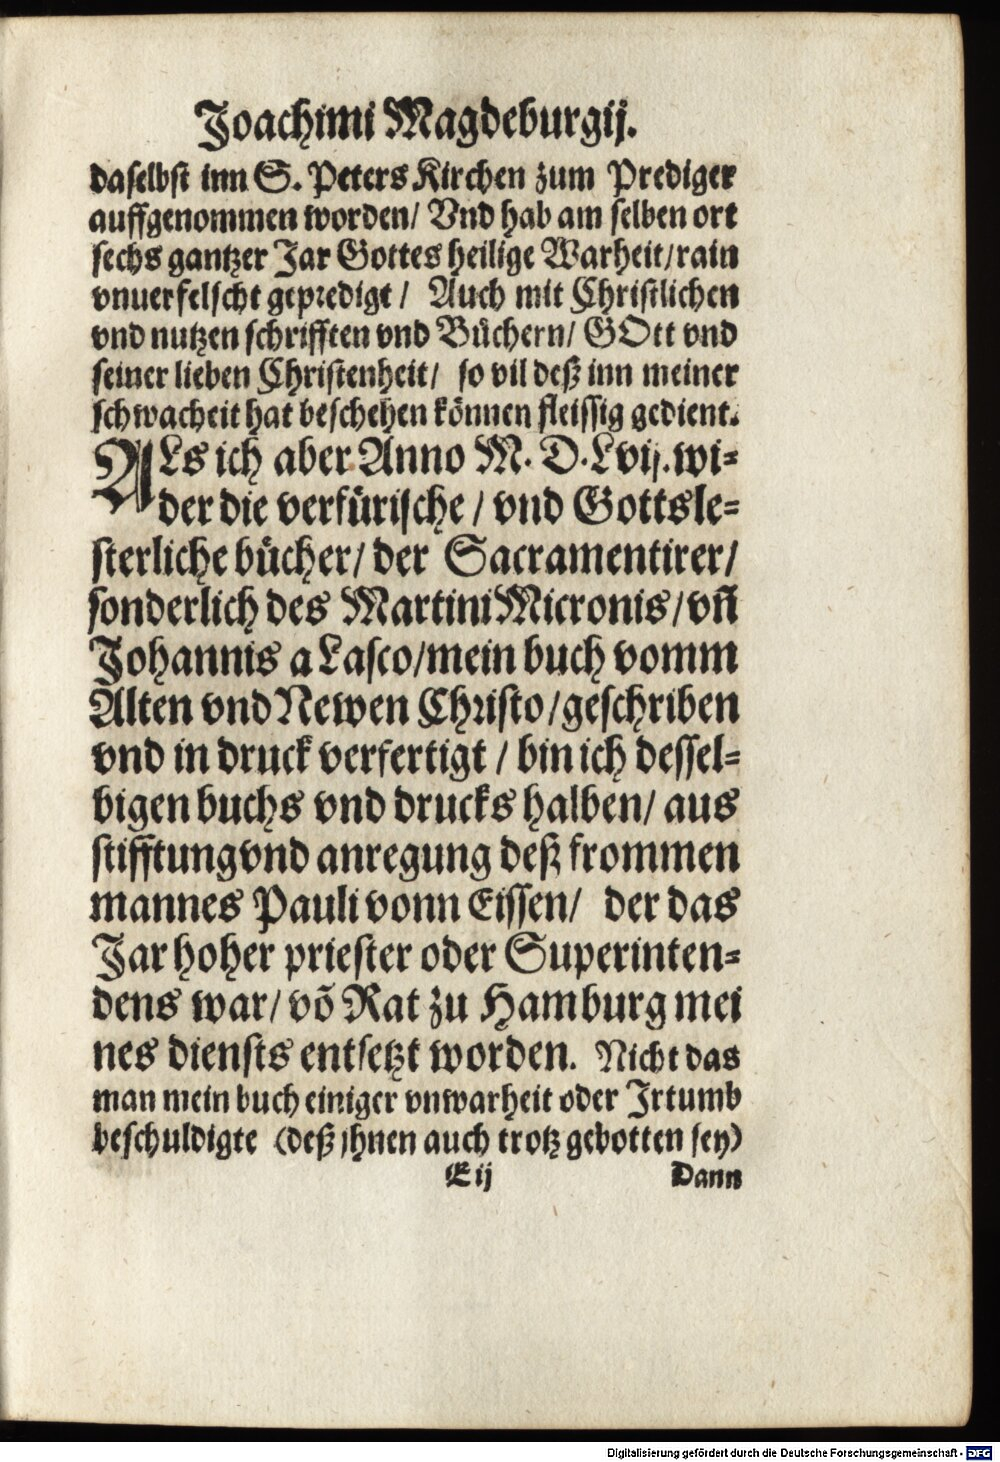 Joachimi Magdeburgij.
daselbst inn S. Peters Kirchen zum Prediger
auffgenommen worden/ Vnd hab am selben ort
sechs gantzer Jar Gottes heilige Warheit/rain
vnuerfelscht gepredigt/ Auch mit Christlichen
vnd nutzen schrifften vnd Büchern/ GOtt vnd
seiner lieben Christenheit/ so vil deß inn meiner
schwacheit hat beschehen können fleissig gedient.
ALs ich aber Anno M. D. Lvij. wi=
der die verfürische/ vnd Gottsle=
sterliche bücher/ der Sacramentirer/
sonderlich des Martini Micronis/vñ
Johannis a Lasco/mein buch vomm
Alten vnd Newen Christo/geschriben
vnd in druck verfertigt/ bin ich dessel=
bigen buchs vnd drucks halben/ aus
stifftung vnd anregung deß frommen
mannes Pauli vonn Eissen/ der das
Jar hoher priester oder Superinten=
dens war/ võ Rat zu Hamburg mei
nes diensts entsetzt worden. Nicht das
man mein buch einiger vnwarheit oder Jrtumb
beschuldigte (deß jhnen auch trotz gebotten sey)
E ij Dann
Digitalisierung gefördert durch die Deutsche Forschungsgemeinschaft - DFG